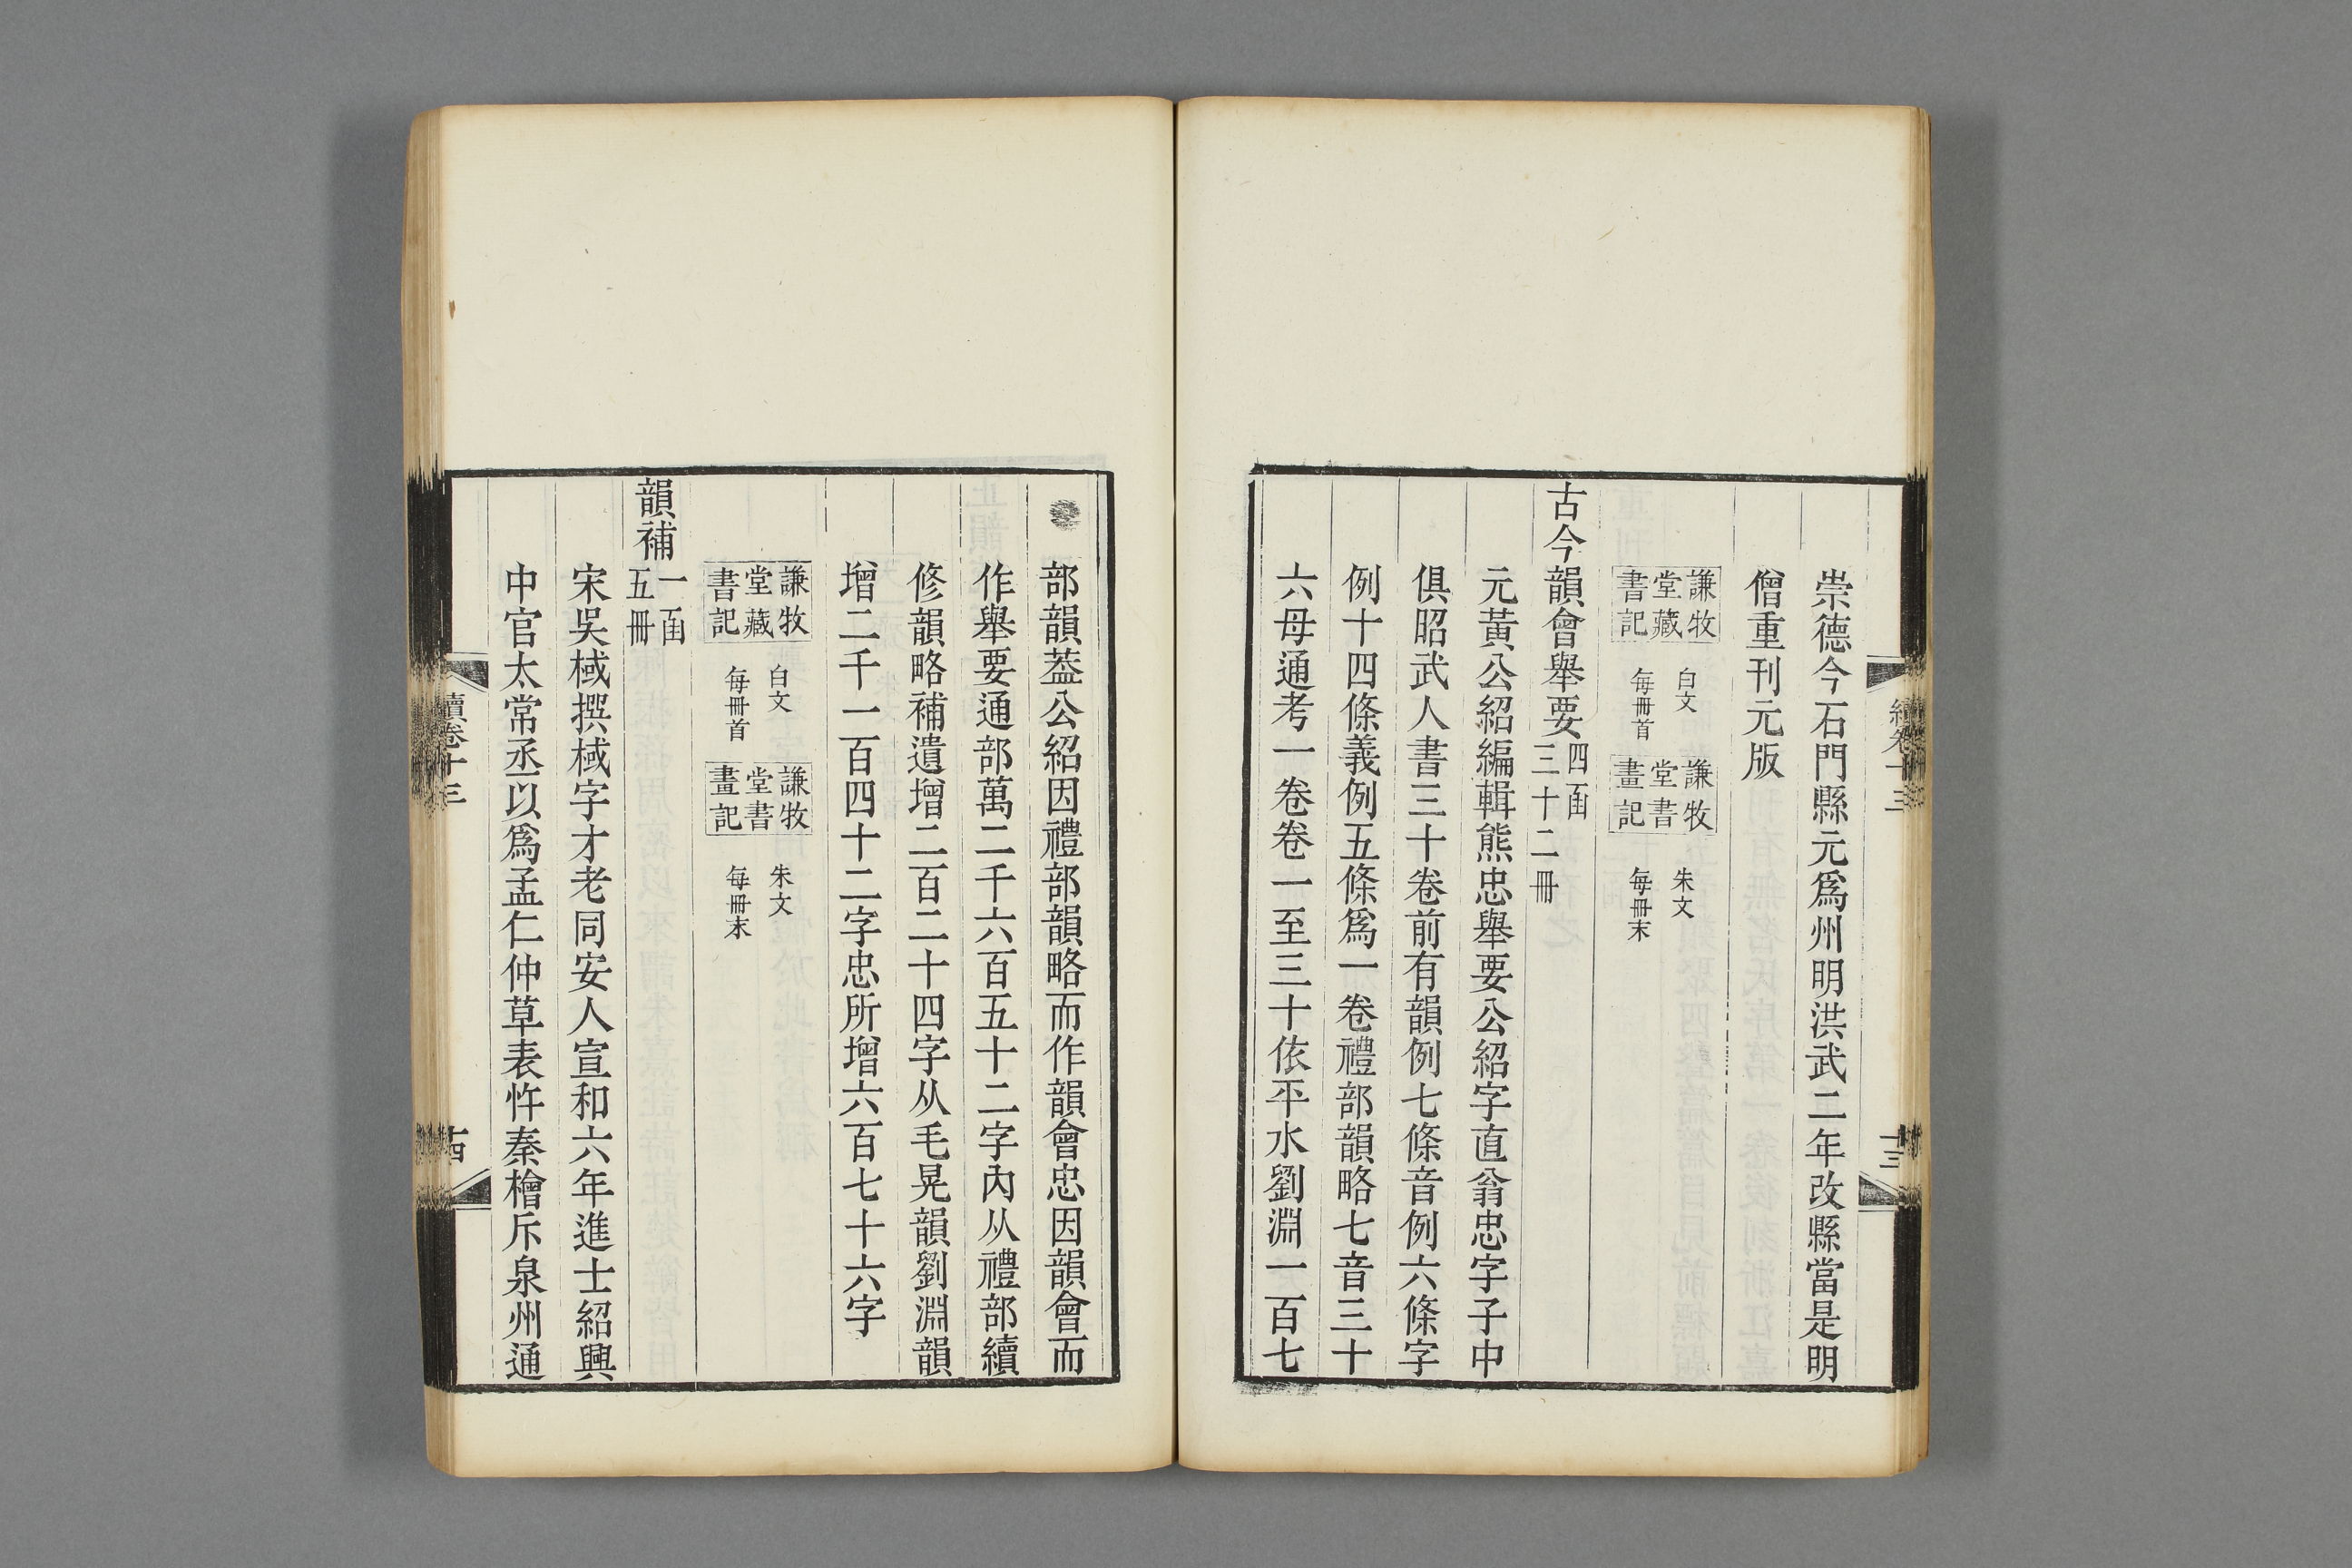 崇德今石門縣元爲州明洪武二年改縣當是明
僧重刊元版
謙牧堂藏書記 白文 每冊首 謙牧堂書畫記 朱文 每冊末
古今韻會舉要 四函 三十二冊
元黃公紹編輯熊忠舉要公紹字直翁忠字子中
俱昭武人書三十卷前有韻例七條音例六條字
例十四條義例五條爲一卷禮部韻略七音三十
六母通考一卷卷一至三十依平水劉淵一百七
部韻葢公紹因禮部韻略而作韻會忠因韻會而
作舉要通部萬二千六百五十二字內从禮部續
修韻略補遺增二百二十四字从毛晃韻劉淵韻
增二千一百四十二字忠所增六百七十六字
謙牧堂藏書記 白文 每冊首 謙牧堂書畫記 朱文 每冊末
韻補 一函 五冊
宋吳棫撰棫字才老同安人宣和六年進士紹興
中官太常丞以爲孟仁仲草表忤秦檜斥泉州通
續卷十三
十三
續卷十三
十四